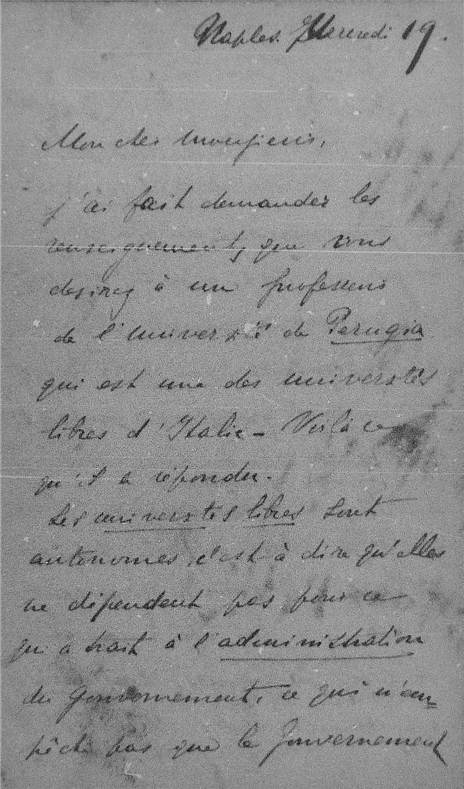 Naples. Mercredi 19.
Mon cher monsieur,
j'ai fait demander les
renseignements que vous
desirez à un professeur
de l'Université de Perugia
qui est une des universités
libres d'Italie – Voilà ce
qu'il a répondu.
Les universités libres sont
autonomes, c'est à dire qu'elles
ne dépendent pas pour ce
qui a trait à l'administration
du Gouvernement, ce qui n'em=
pêche pas que le Gouvernement